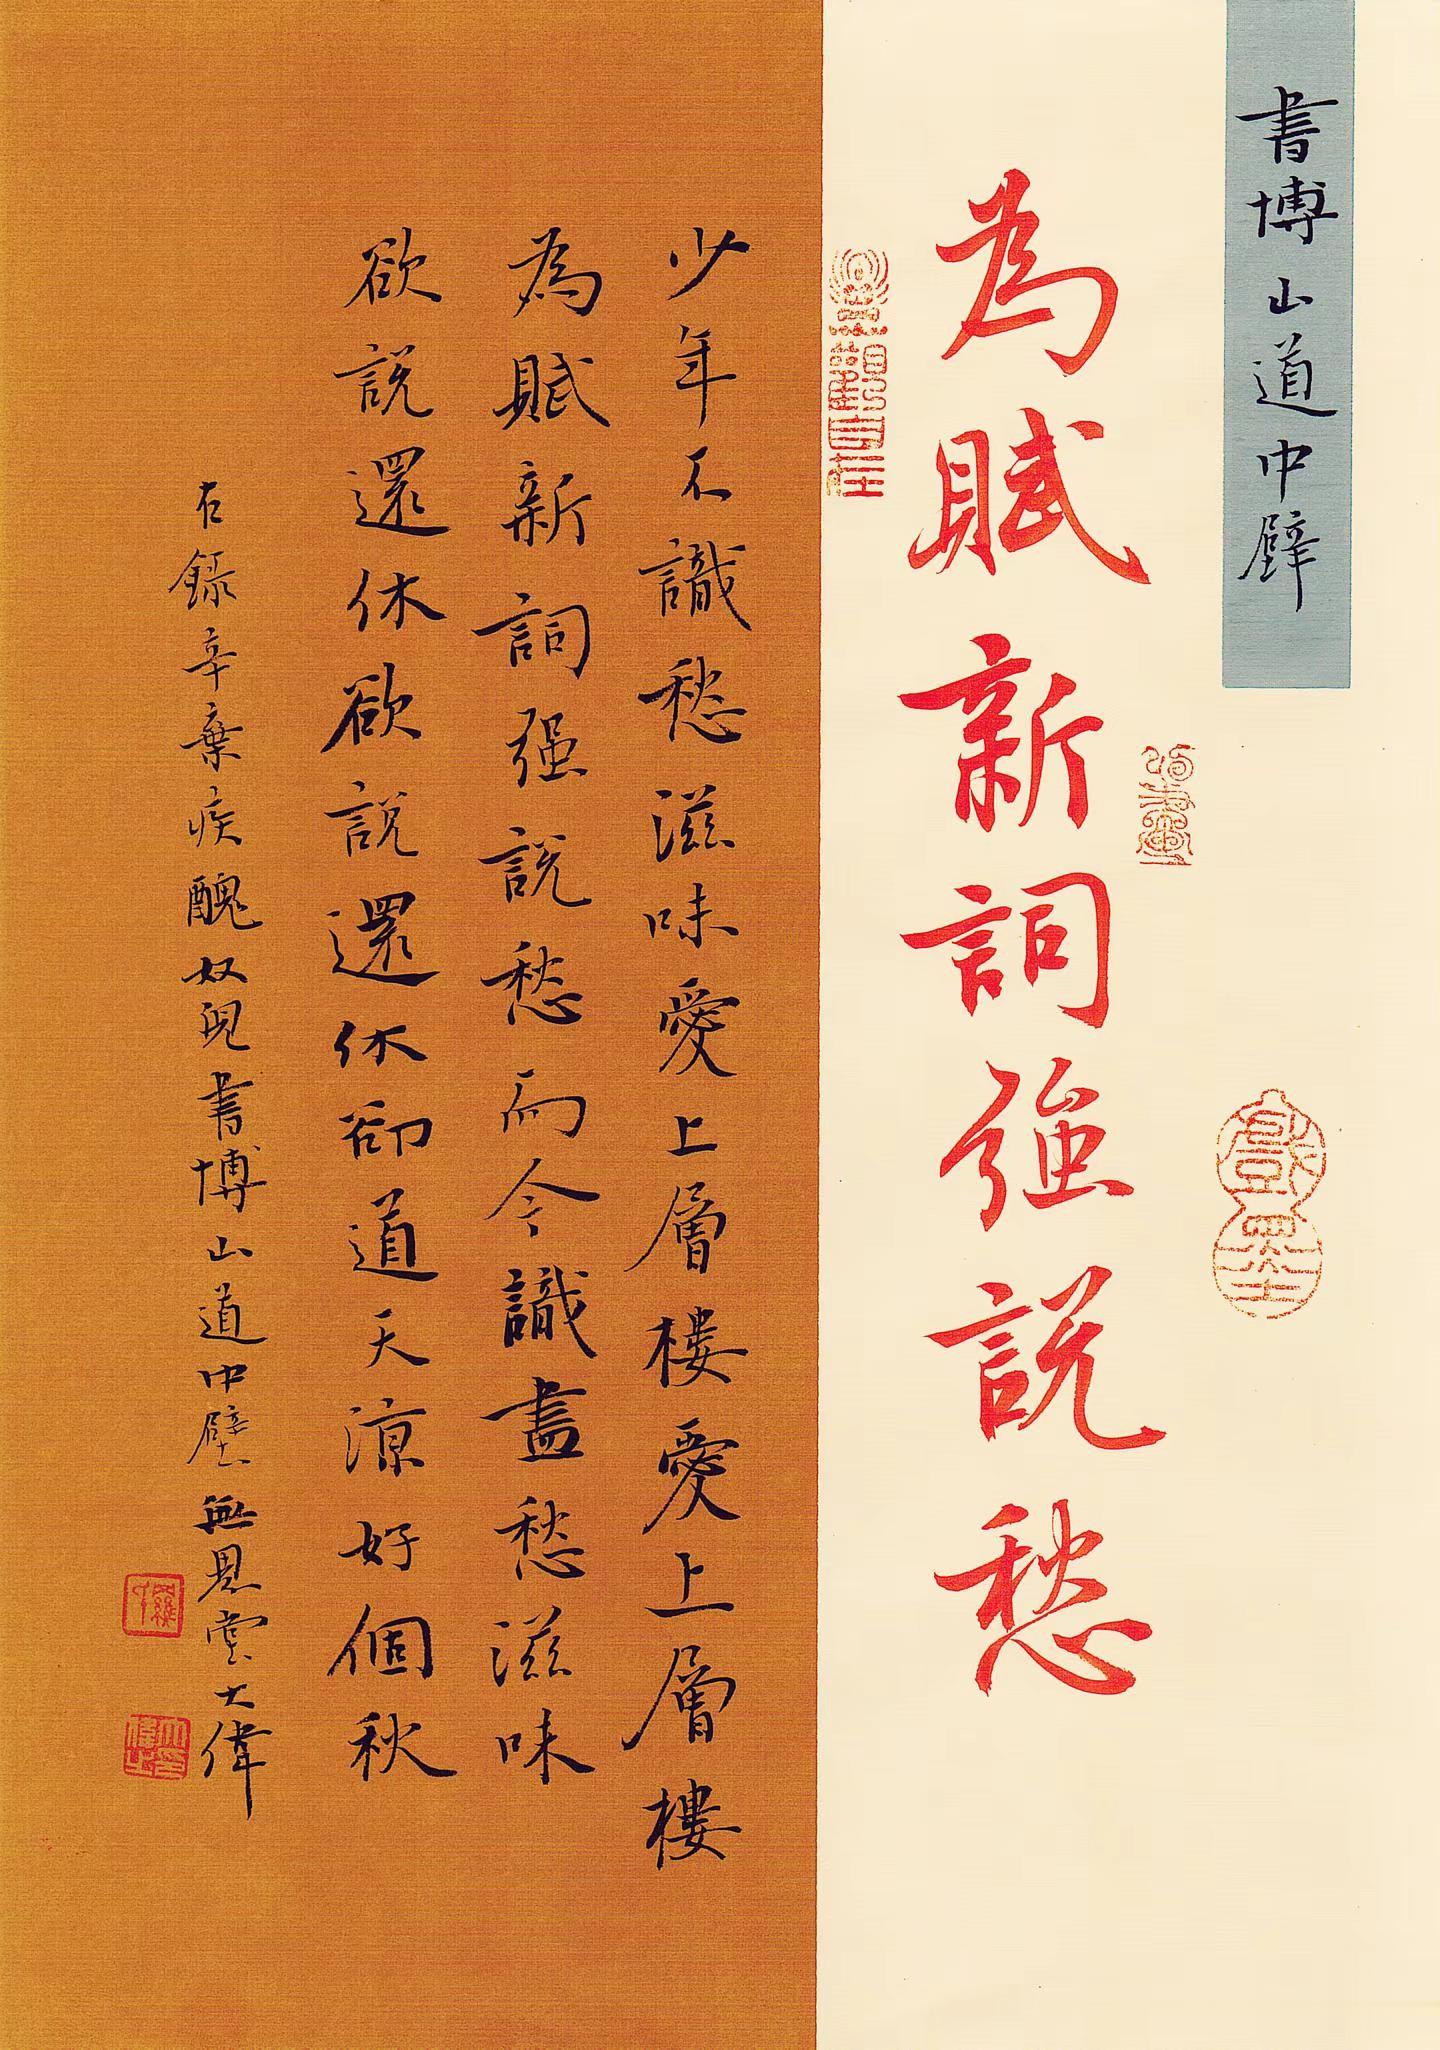 書博山道中壁
為賦新詞強說愁
少年不識愁滋味愛上層樓愛上層樓
為賦新詞强說愁而今識盡愁滋味
欲說還休欲說還休卻道天涼好個秋
右錄辛棄疾醜奴兒書博山道中壁無思堂大偉
戲墨
觀自在